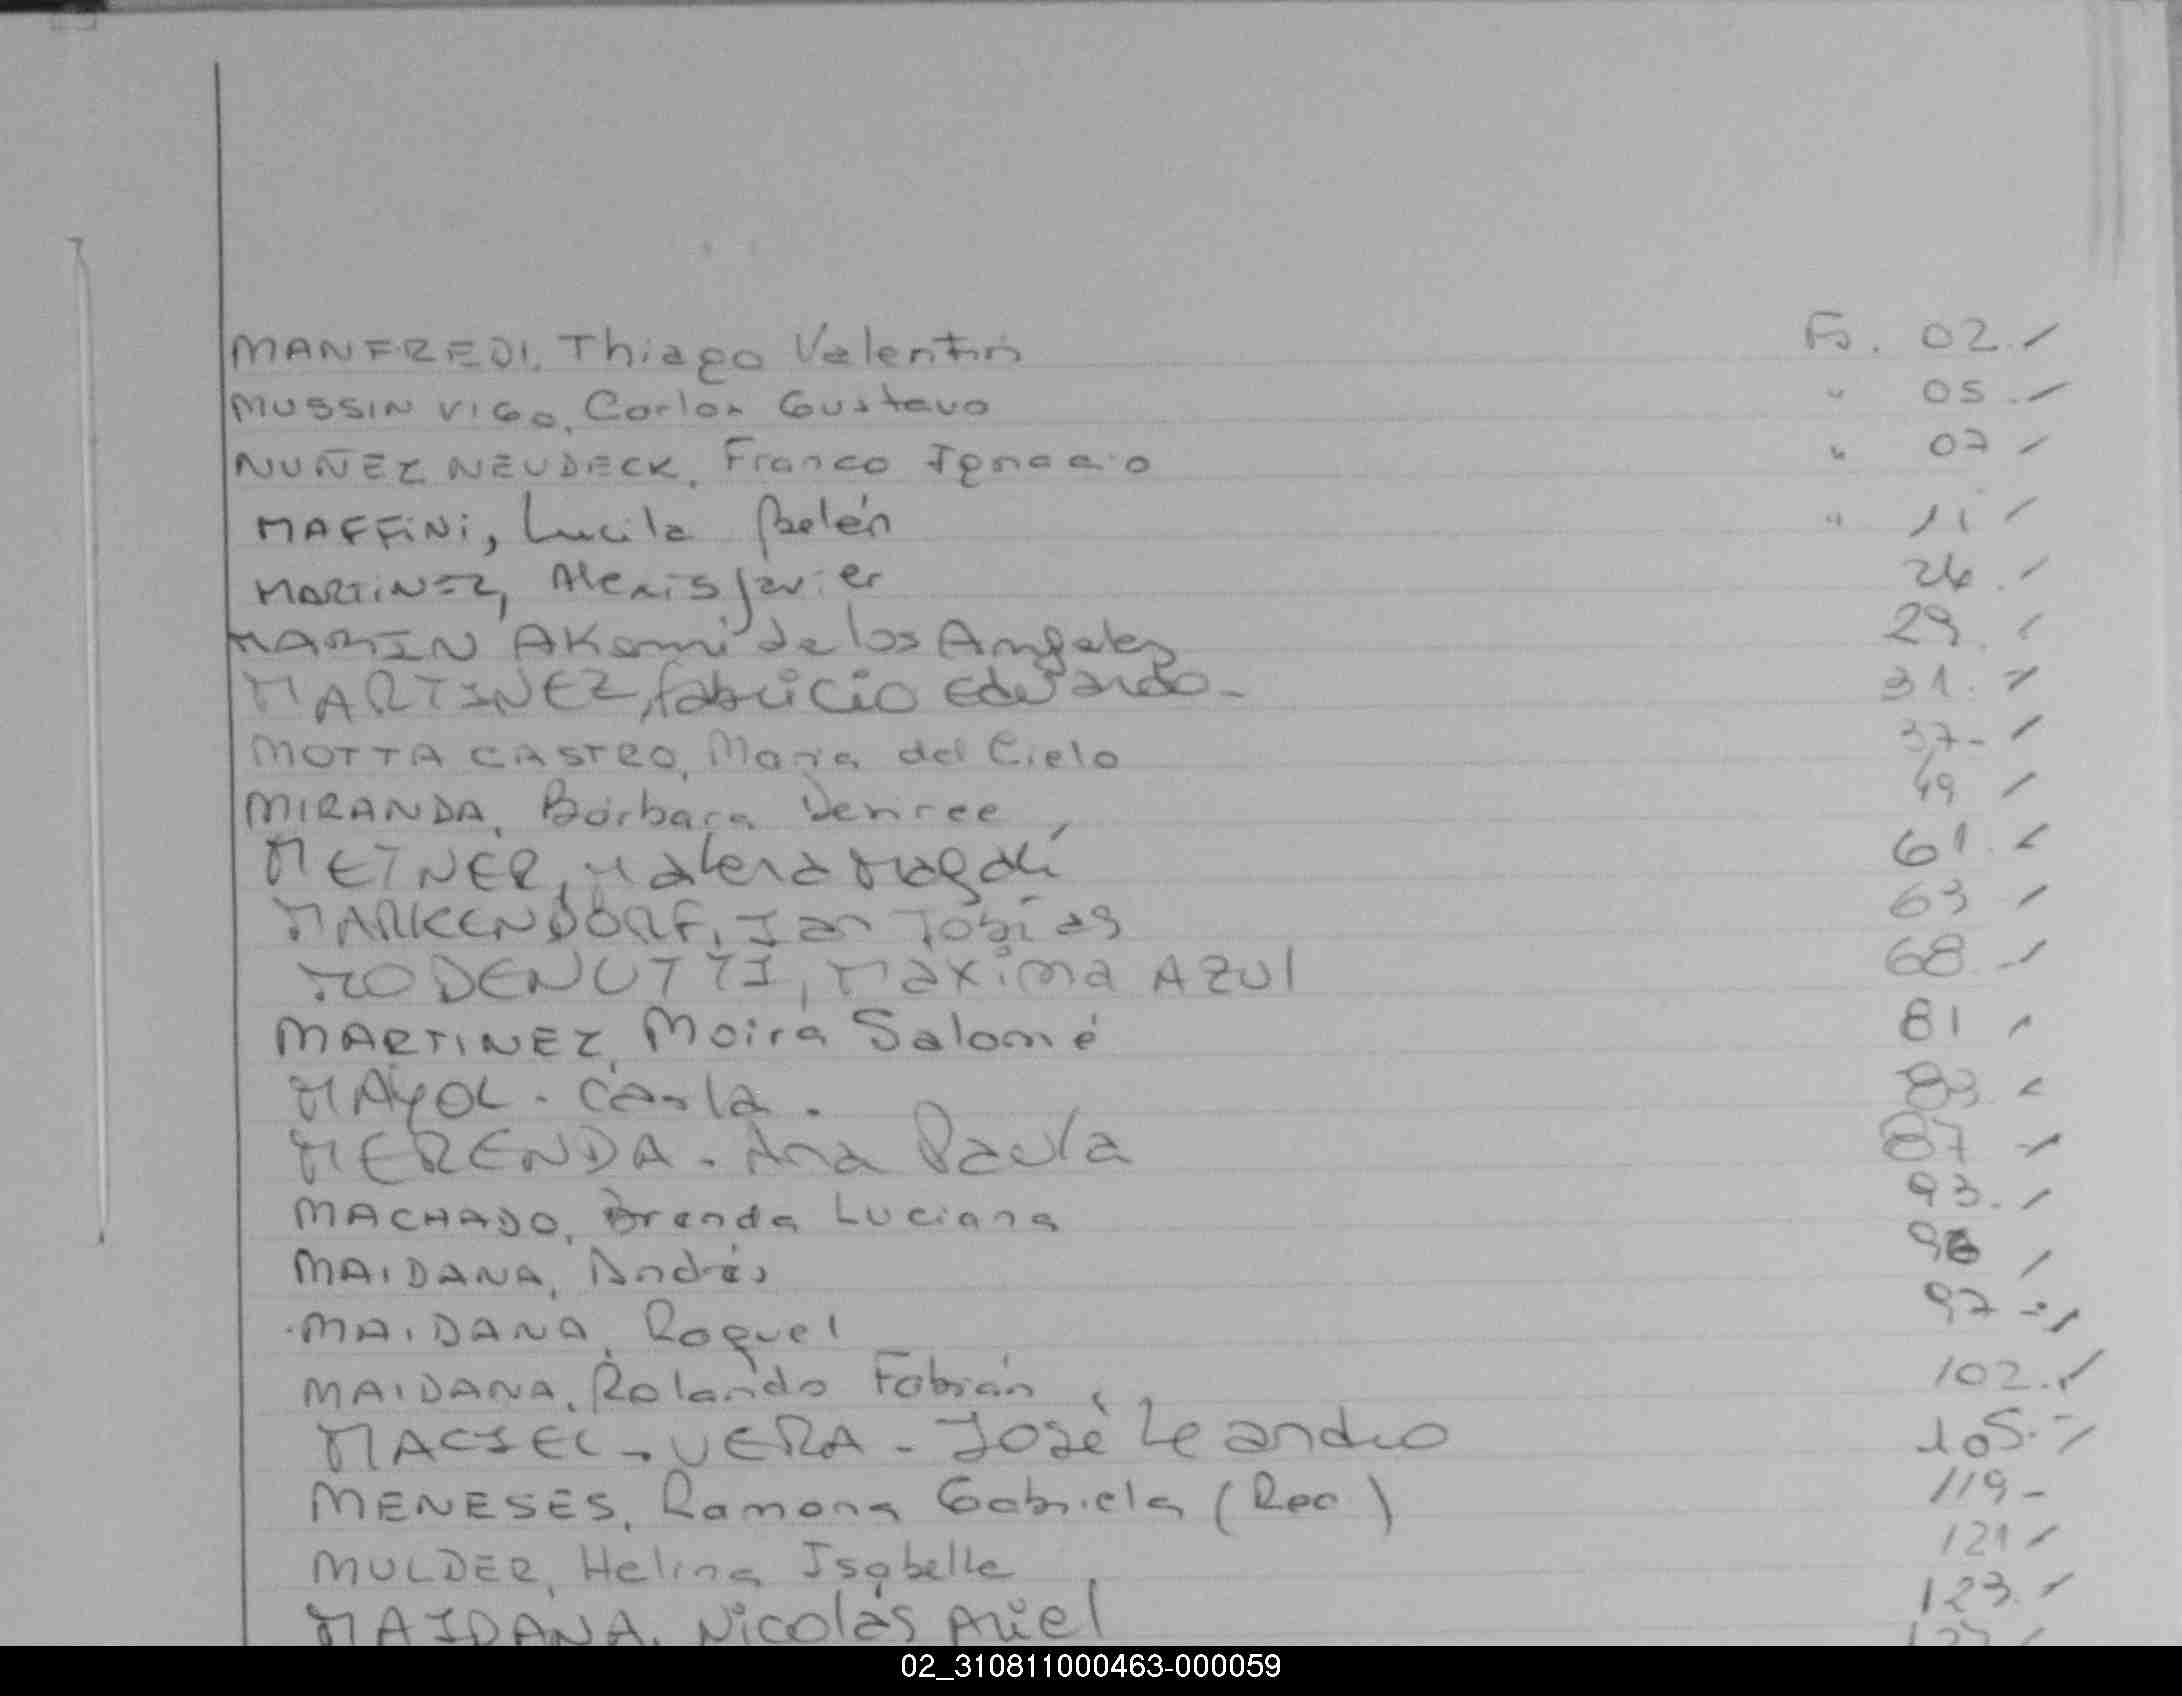 MANFREDI, Thiago Valentin Fs. 02.-
MUSSIN VIGO, Carlos Gustavo " 05.-
NUÑEZ NEUDECK, Franco Ignacio " 07 -
MAFFiNi, Lucila Belén " 11 -
MARTiNEZ, Alexis Javier 26.-
MARIN Akemi de los Angeles 29.-
MARTINEZ, Fabricio Eduardo- 31.-
MOTTA CASTRO, Maria del Cielo 37.-
MIRANDA, Bárbara Denree 49 -
METNER, Malena Magali 61.-
MARKENDORF, Ian Tobías 63 -
MODENUTTI, Maxima AZUl 68.-
MARTINEZ, Moira Salomé 81 -
MAYOL - Carla. 83.-
MERENDA - Ana Paula 87 -
MACHADO, Brenda Luciana 93.-
MAIDANA, Andrés 96 -
MAIDANA, Raquel 97 -
MAIDANA, Rolando Fabián 102.-
MACIEL - VERA - José Leandro 105.-
MENESES, Ramona Gabriela (Rec.) 119-
MULDER, Helina Isabelle 121 -
MAIDANA, Nicolás Ariel 123.-
02_310811000463-000059